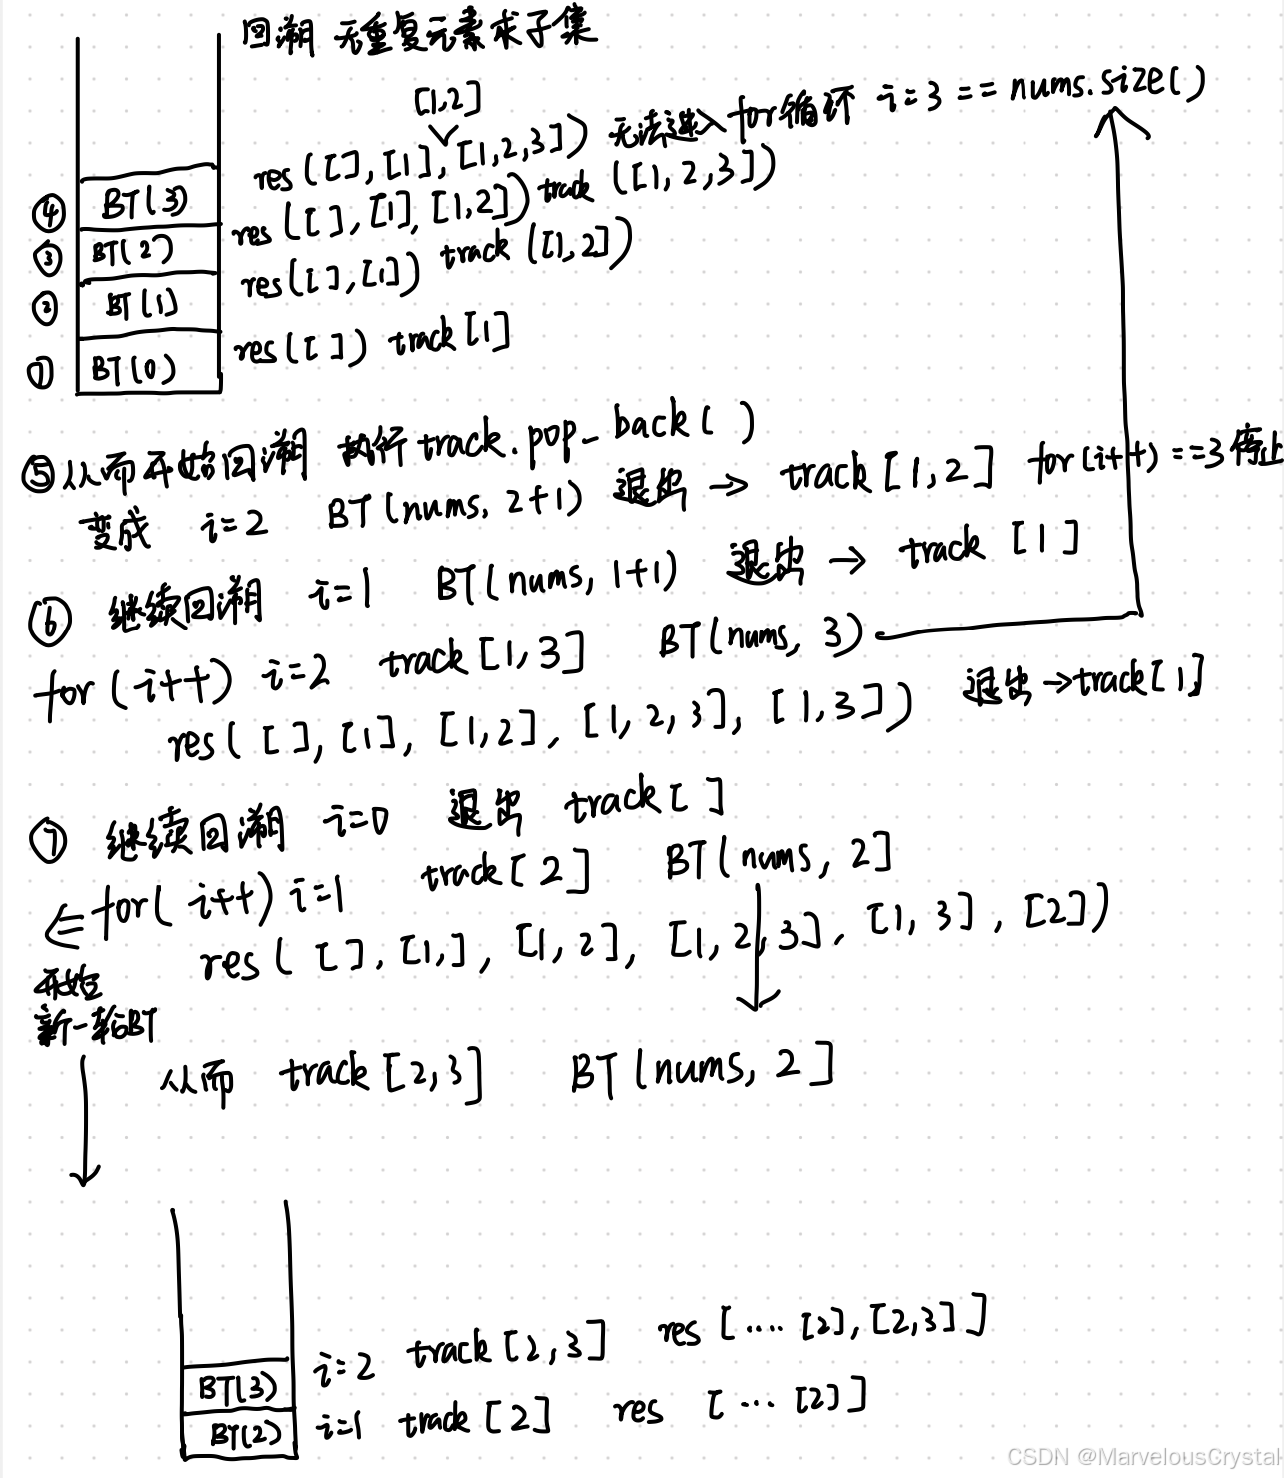 回溯 无重复元素求子集
[1,2]
res([],[1],[1,2,3]) 无法进入for循环 i=3 == nums.size()
④ BT(3) res([],[1],[1,2]) track([1,2,3])
③ BT(2) res([],[1]) track([1,2])
② BT(1)
① BT(0) res([]) track[1]
⑤ 从而开始回溯 执行track.pop_back()
变成 i=2 BT(nums, 2+1) 退出 → track[1,2] for(i++)==3停止
⑥ 继续回溯 i=1 BT(nums, 1+1) 退出 → track [1]
for(i++) i=2 track[1,3] BT(nums, 3)
res([],[1],[1,2],[1,2,3],[1,3]) 退出→track[1]
⑦ 继续回溯 i=0 退出 track[]
⇐ for(i++) i=1 track[2] BT(nums, 2]
res([],[1,],[1,2],[1,2,3],[1,3],[2])
开始
新一轮BT
从而 track[2,3] BT(nums, 2]
BT(3) i=2 track[2,3] res[....[2],[2,3]]
BT(2) i=1 track[2] res [...[2]]
CSDN @MarvelousCrystal